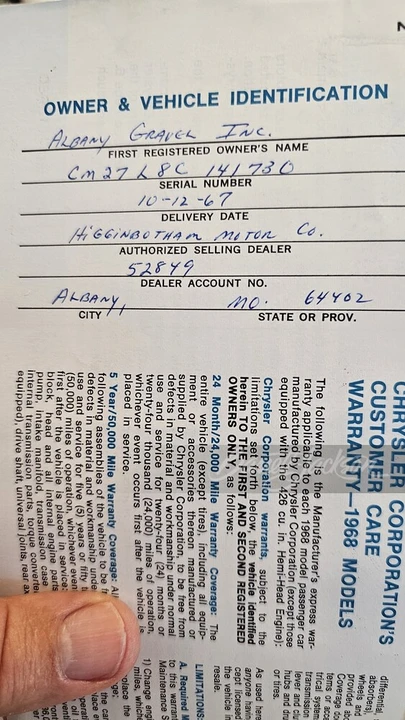 OWNER & VEHICLE IDENTIFICATION
ALBANY GRAVEL INC.
FIRST REGISTERED OWNER'S NAME
CM27L8C 141730
SERIAL NUMBER
10-12-67
DELIVERY DATE
HIGGINBOTHAM MOTOR Co.
AUTHORIZED SELLING DEALER
52849
DEALER ACCOUNT NO.
ALBANY, MO. 64402
CITY STATE OR PROV.
CHRYSLER CORPORATION'S
CUSTOMER CARE
WARRANTY—1968 MODELS
The following is the Manufacturer's express war-
ranty applicable to each 1968 model passenger car
manufactured by Chrysler Corporation (except those
equipped with the 426 cu. in. Hemi-Head Engine):
Chrysler Corporation warrants, subject to the
limitations set forth below, the vehicle identified
herein TO THE FIRST AND SECOND REGISTERED
OWNERS ONLY, as follows:
24 Month/24,000 Mile Warranty Coverage: The
entire vehicle (except tires), including all equip-
ment or accessories thereon manufactured or
supplied by Chrysler Corporation, to be free from
defects in material and workmanship under normal
use and service for twenty-four (24) months or
twenty-four thousand (24,000) miles of operation,
whichever event occurs first after the vehicle is
placed in service.
5 Year/50,000 Mile Warranty Coverage:
following assemblies of the vehicle to be
defects in material and workmanship under
use and service for five (5) years or fifty
(50,000) miles of operation, whichever event
first after the vehicle is placed in service:
block, head and all internal engine parts,
pump, intake manifold, transmission case
internal transmission parts, torque converter
equipped), drive shaft, universal joints, rear
differential
absorbers
wheels and
provided
Coverage
tems or
trical system
transmission
lever and
hubs and
or tires.
As used here
anyone having
cept licensed
the vehicle in
resale.
LIMITATIONS:
A. Required
to this
Maintenance
1) Change eng
miles, which